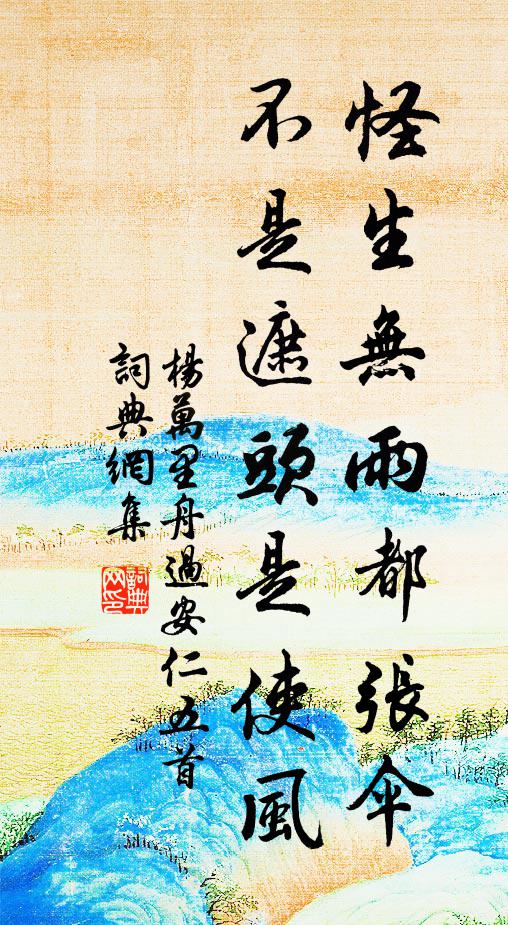 怪生無雨都張傘
不是遮頭是使風
楊萬里舟過安仁五首
詞典網集
詞典
网印